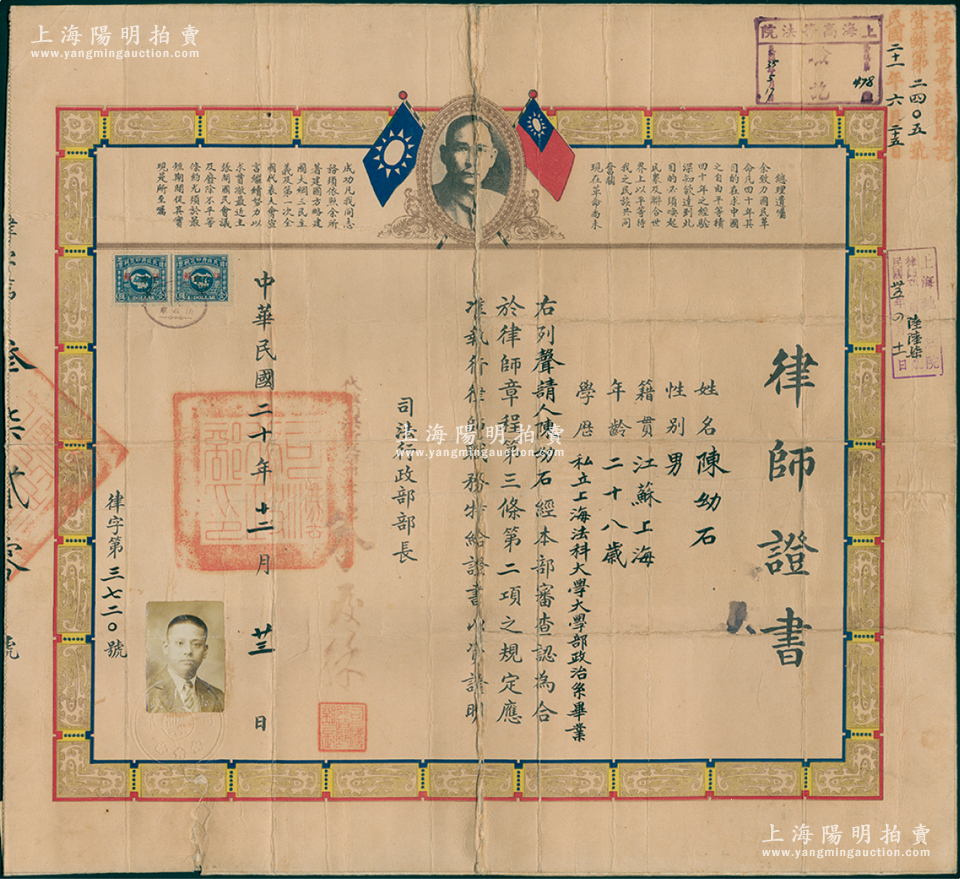 上海陽明拍賣
www.yangmingauction.com
江蘇高等法院
登錄第二四〇五號
民國二十一年六月二十五日
上海高等法院
478
總理遺囑
余致力國民革
命凡四十年其
目的在求中國
之自由平等積
四十年之經驗
深知欲達到此
目的必須喚起
民眾及聯合世
界上以平等待
我之民族共同
奮鬥
現在革命尚未
成功凡我同志
務須依照余所
著建國方略建
國大綱三民主
義及第一次全
國代表大會宣
言繼續努力以
求貫徹最近主
張開國民會議
及廢除不平等
條約尤須於最
短期間促其實
現是所至囑
律師證書
姓名陳幼石
性別男
籍貫江蘇上海
年齡二十八歲
學歷私立上海法科大學大學部政治系畢業
右列聲請人陳幼石經本部審查認為合
於律師章程第三條第二項之規定應
准執行律師職務特給證書以資證明
司法行政部部長
中華民國二十年十二月廿三日
律字第三七二〇號
上海陽明拍賣
www.yangmingauction.com
上海陽明拍賣
www.yangmingauction.com